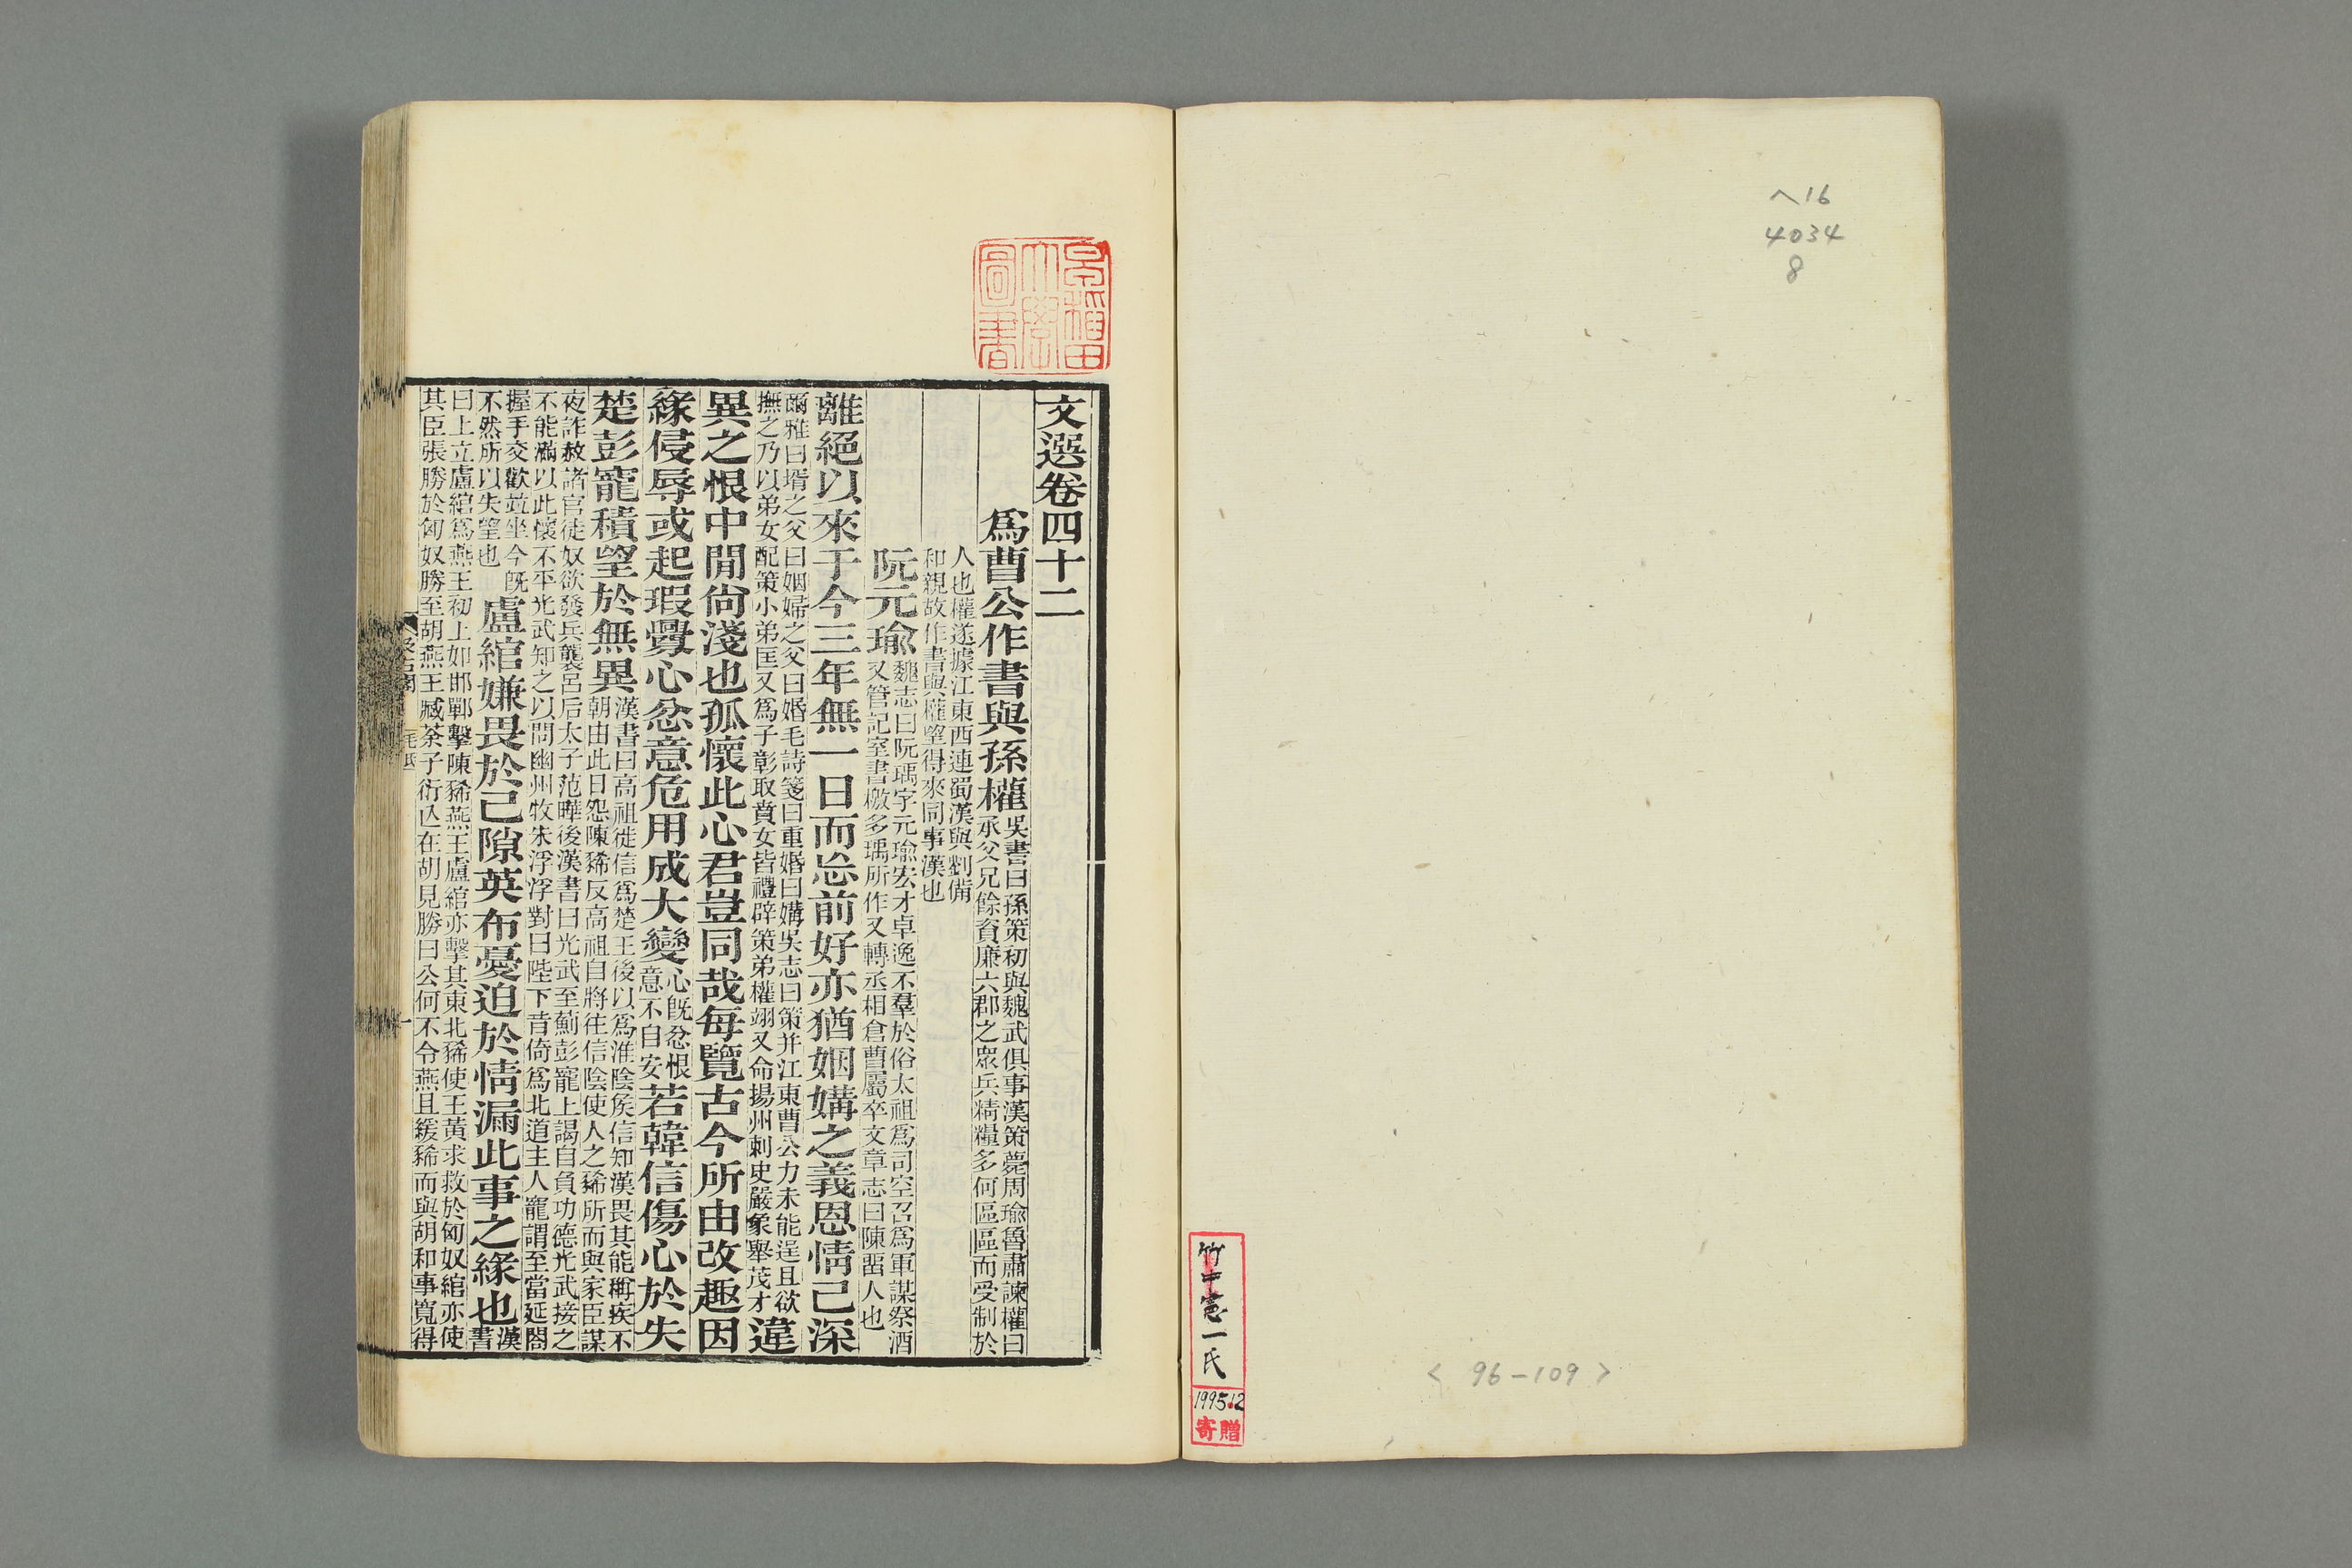 ヘ16
4034
8
竹中憲一氏
1995.12
寄贈
< 96-109 >
早稲田大學圖書
文選卷四十二
爲曹公作書與孫權吳書曰孫策初與魏武俱事漢策薨周瑜魯肅諫權曰承父兄餘資廉六郡之眾兵精糧多何區區而受制於
人也權遂據江東西連蜀漢與劉備和親故作書與權望得來同事漢也
阮元瑜魏志曰阮瑀字元瑜宏才卓逸不羣於俗太祖爲司空召爲軍謀祭酒又管記室書檄多瑀所作又轉丞相倉曹屬卒文章志曰陳留人也
離絕以來于今三年無一日而忘前好亦猶姻媾之義恩情已深
爾雅曰壻之父曰姻婦之父曰婚毛詩箋曰重婚曰媾吳志曰策并江東曹公力未能逞且欲撫之乃以弟女配策小弟匡又爲子彰取賁女皆禮辟策弟權翊又命揚州刺史嚴象舉茂才違
異之恨中閒尙淺也孤懷此心君豈同哉每覽古今所由改趣因
緣侵辱或起瑕釁心忿意危用成大變心旣忿恨意不自安若韓信傷心於失
楚彭寵積望於無異漢書曰高祖徙信爲楚王後以爲淮陰侯信知漢畏其能稱疾不朝由此日怨陳豨反高祖自將往信陰使人之豨所而與家臣謀
夜詐赦諸官徒奴欲發兵襲呂后太子范曄後漢書曰光武至薊彭寵上謁自負功德光武接之不能滿以此懷不平光武知之以問幽州牧朱浮浮對曰陛下昔倚爲北道主人寵謂至當延閤
握手交歡竝坐今旣不然所以失望也盧綰嫌畏於已隙英布憂迫於情漏此事之緣也漢書
曰上立盧綰爲燕王初上如邯鄲擊陳豨燕王盧綰亦擊其東北豨使王黃求救於匈奴綰亦使其臣張勝於匈奴勝至胡燕王臧荼子衍亾在胡見勝曰公何不令燕且緩豨而與胡和事寬得
汲古閣
毛氏
一